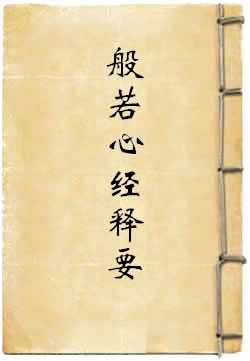 般若心经释要